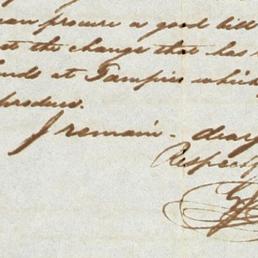 can procure a good bill
at the change that has
at Tampico which
produce.
I remain - dear
Respec